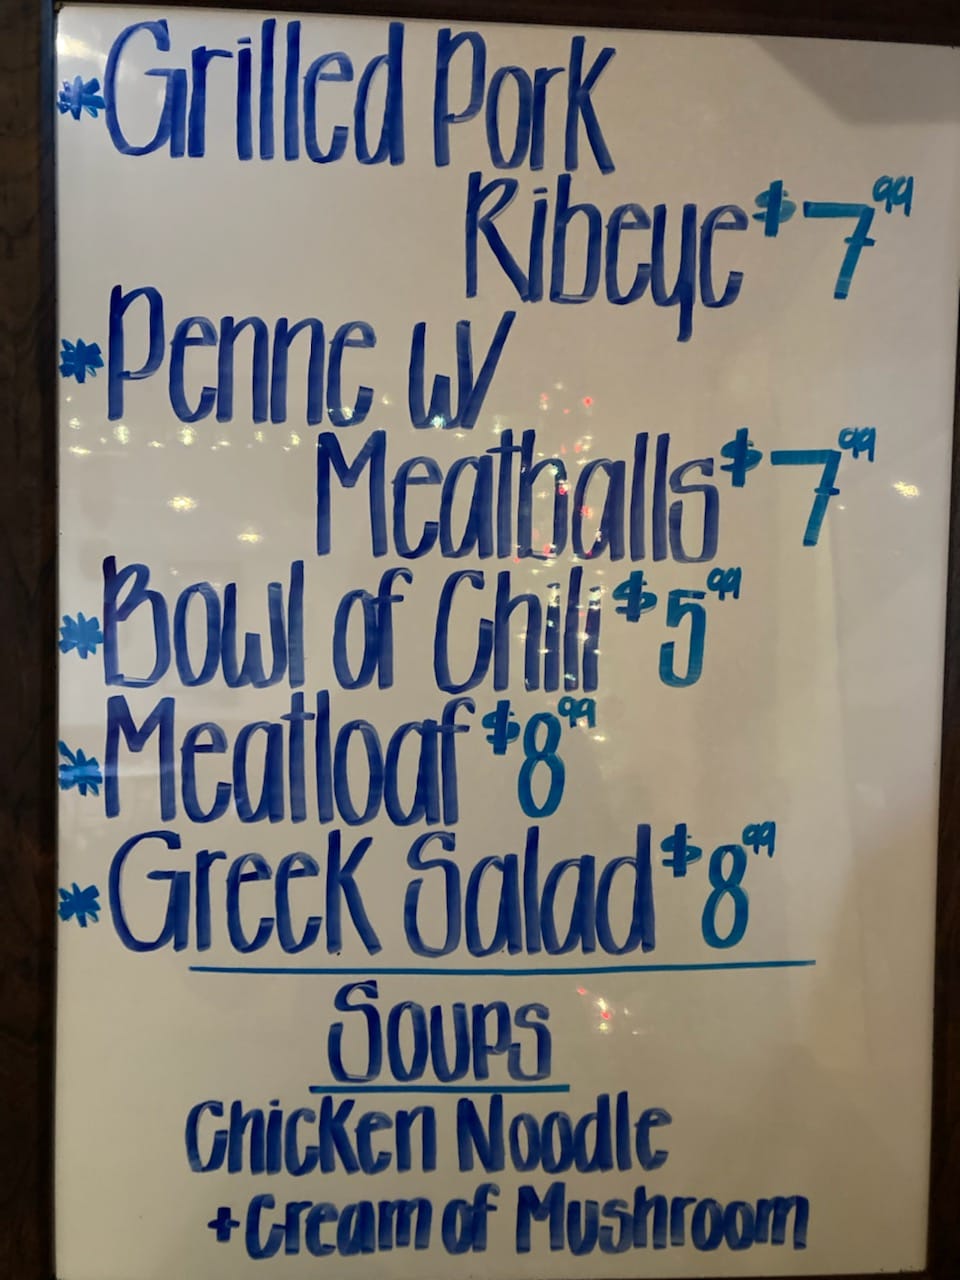 *Grilled Pork
Ribeye $7.99
*Penne w/
Meatballs $7.99
*Bowl of Chili $5.99
*Meatloaf $8.99
*Greek Salad $8.99
Soups
Chicken Noodle
+Cream of Mushroom